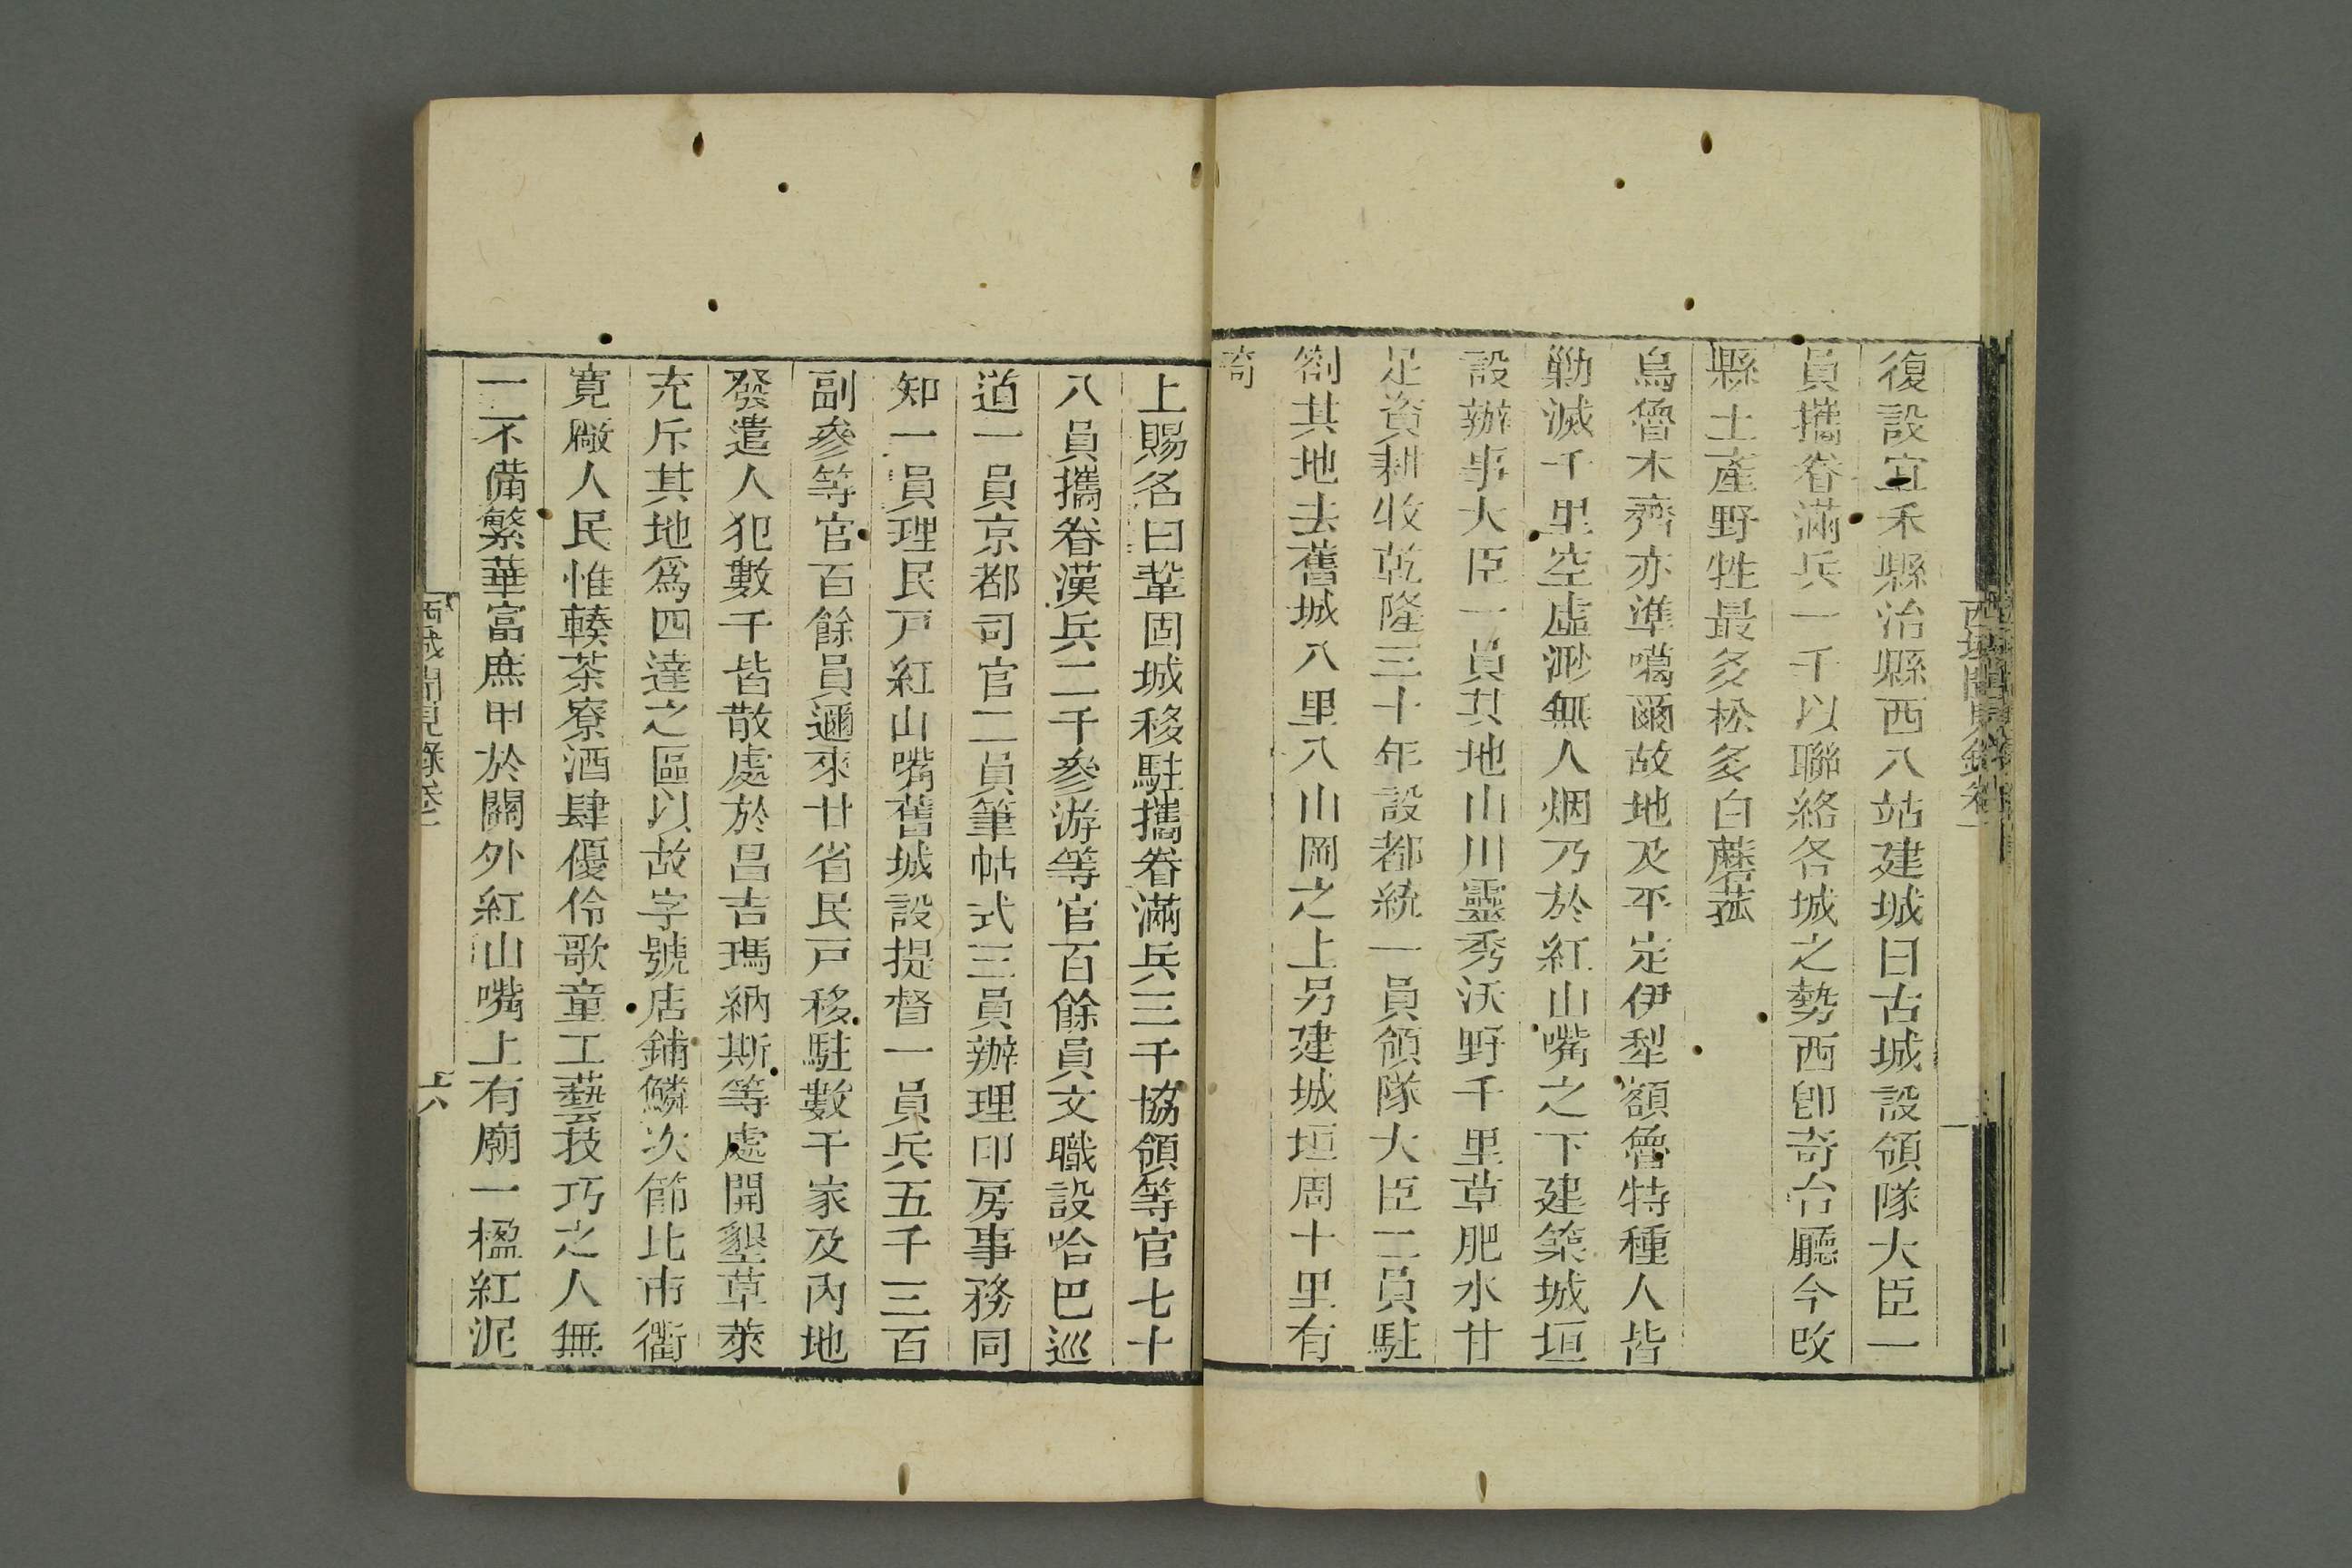 復設宜禾縣治縣西八站建城曰古城設領隊大臣一
員攜眷滿兵一千以聯絡各城之勢西卽奇台廳今改
縣土產野牲最多松多白蘑菰
烏魯木齊亦準噶爾故地及平定伊犁額魯特種人皆
勦滅千里空虛渺無人烟乃於紅山嘴之下建築城垣
設辦事大臣一員其地山川靈秀沃野千里草肥水甘
足資耕收乾隆三十年設都統一員領隊大臣二員駐
劄其地去舊城八里八山岡之上另建城垣周十里有
奇
上賜名曰鞏固城移駐攜眷滿兵三千協領等官七十
八員攜眷漢兵二千參游等官百餘員文職設哈巴巡
道一員京都司官二員筆帖式三員辦理印房事務同
知一員理民戸紅山嘴舊城設提督一員兵五千三百
副參等官百餘員邇來廿省民戸移駐數千家及內地
發遣人犯數千皆散處於昌吉瑪納斯等處開墾草萊
充斥其地爲四達之區以故字號店鋪鱗次節比市衢
寛厰人民惟輳茶寮酒肆優伶歌童工藝技巧之人無
一不備繁華富庶甲於關外紅山嘴上有廟一楹紅泥
西域聞見錄卷一
六